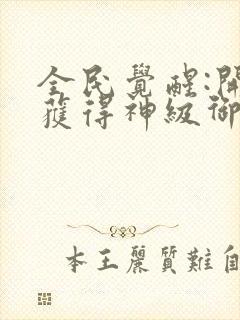 全民覺醒:開
獲得神級御
本王麗質難自